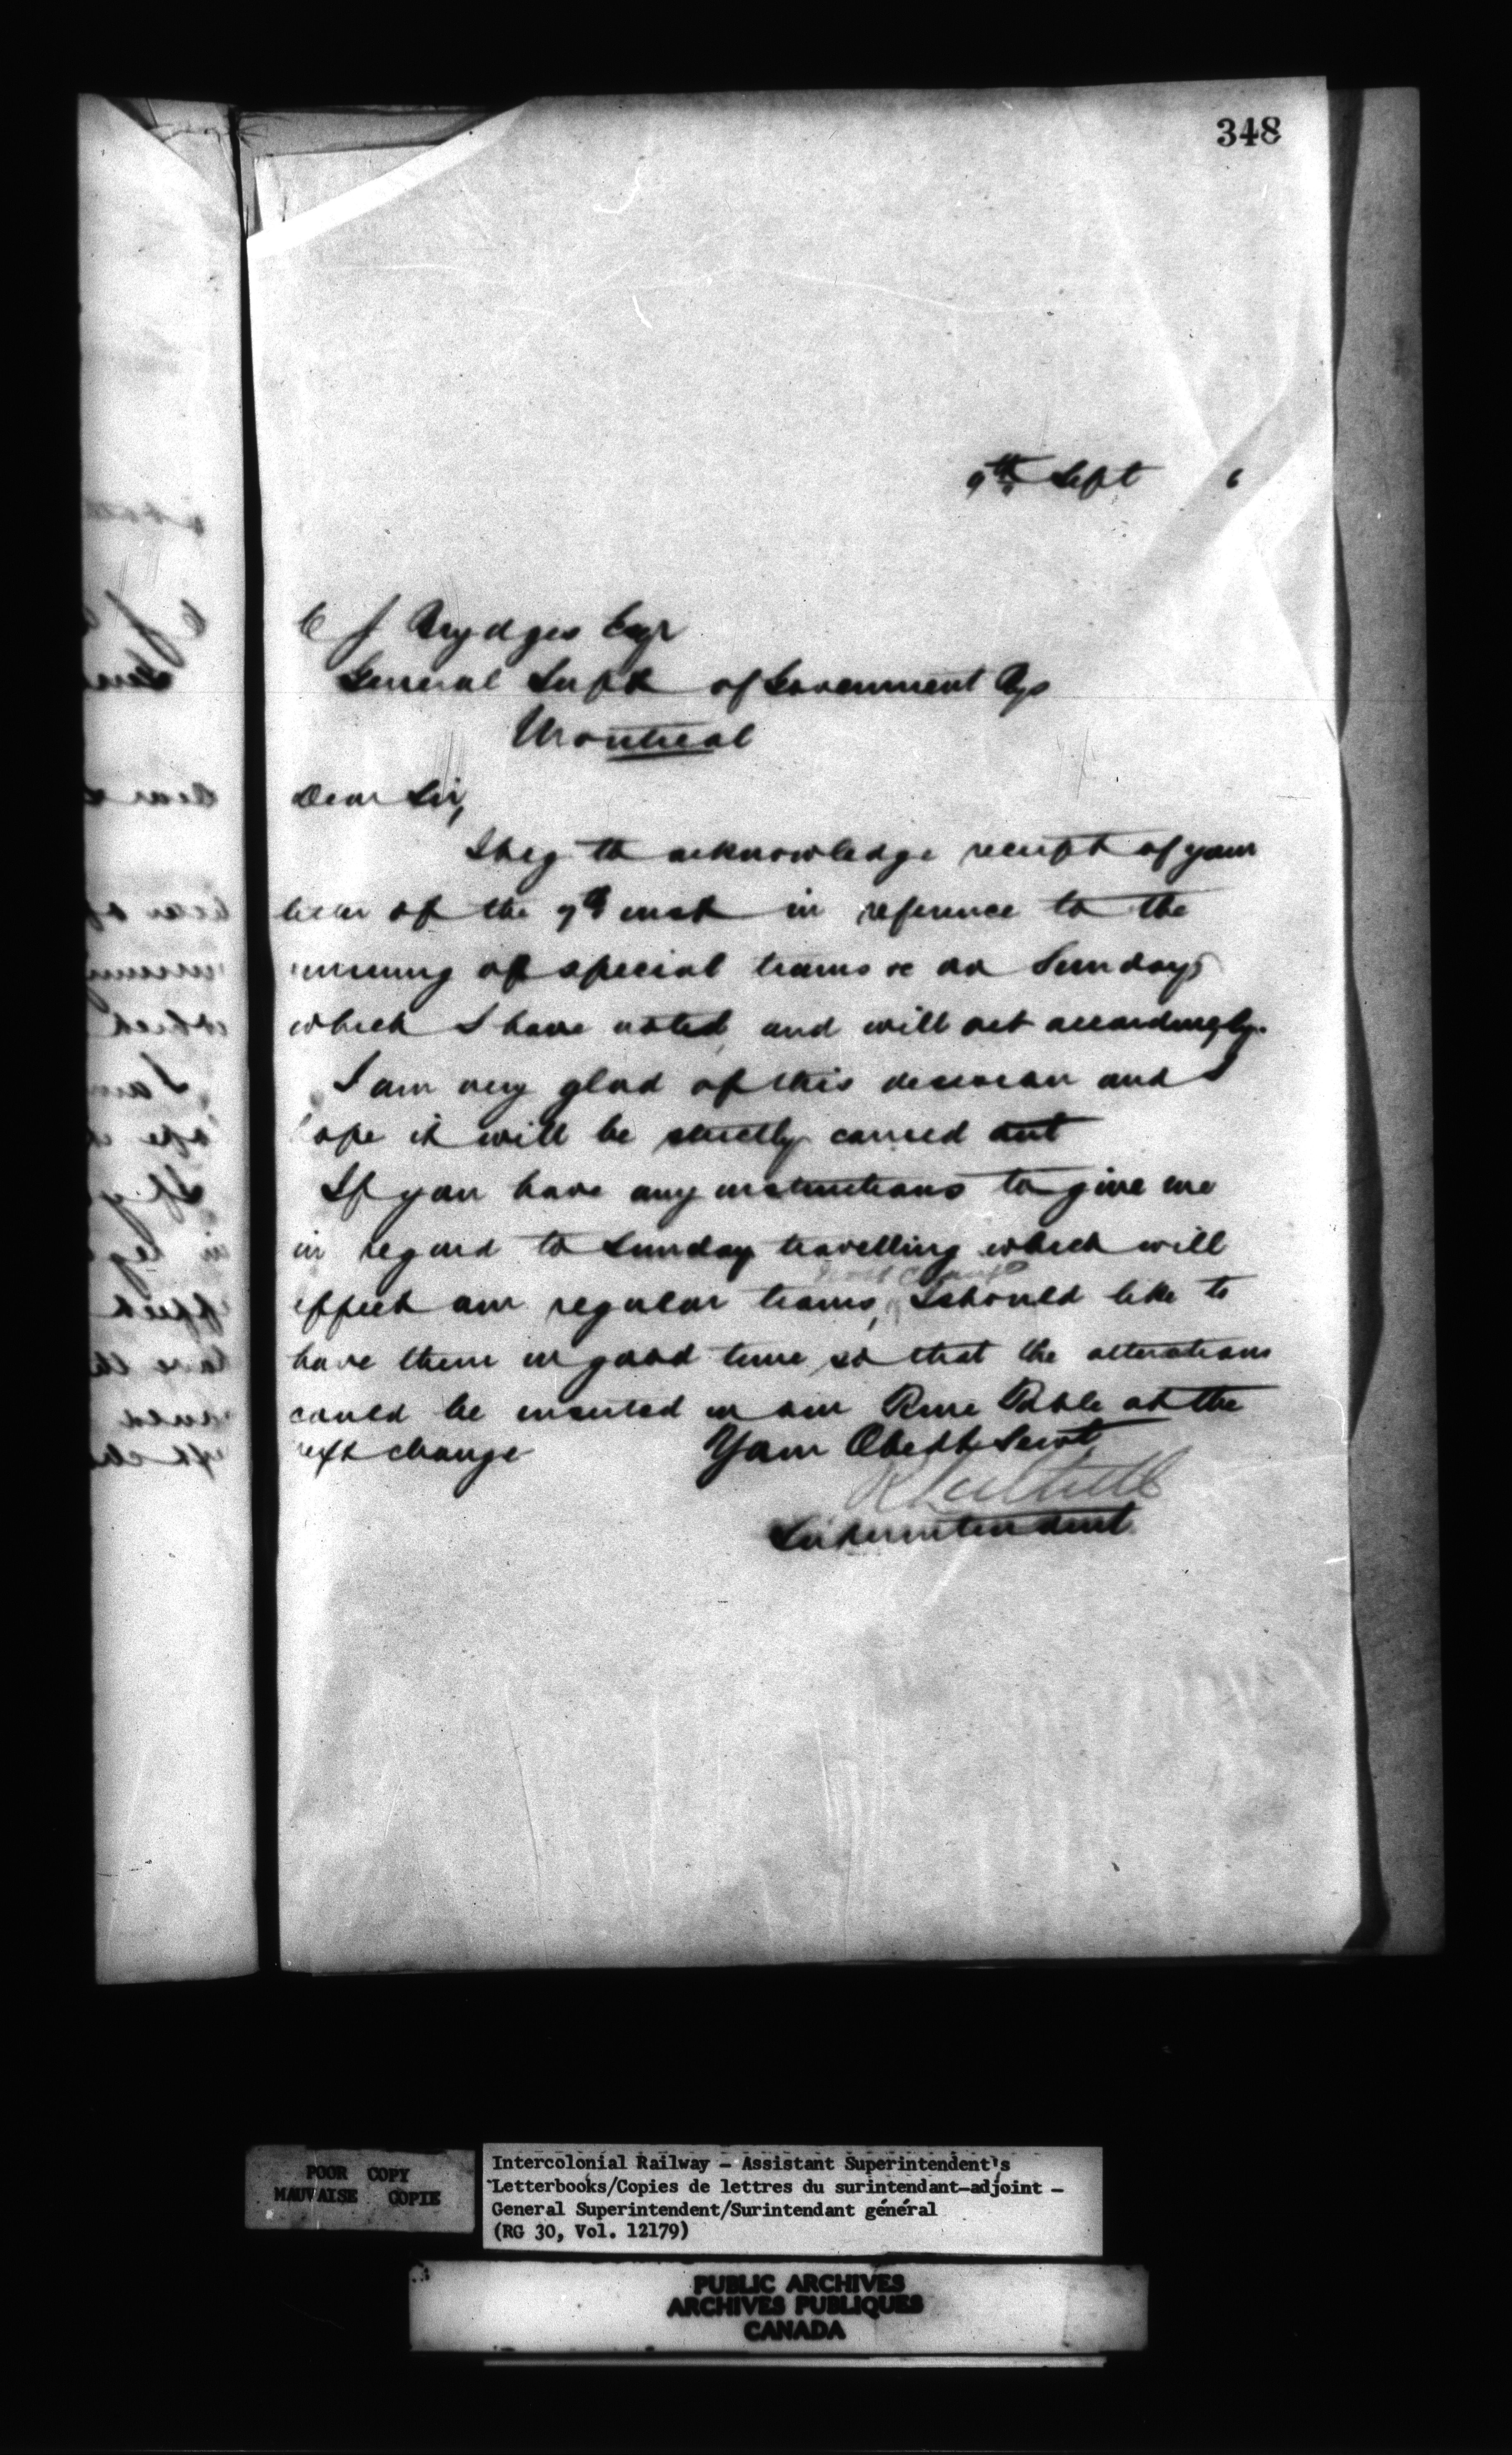 348
9th Sept 6
C J Brydges Esqr
General Supt of Government Rys
Montreal
Dear Sir,
I beg to acknowledge receipt of your
letter of the 7th inst in reference to the
running of special trains &c on Sundays
which I have noted and will act accordingly.
I am very glad of this decision and I
hope it will be strictly carried out
If you have any instructions to give me
in regard to Sunday travelling which will
effect our regular trains, I should like to
have them in good time so that the alterations
could be inserted in our Time Table at the
next change
Your Obedt Servt
Superintendent
POOR COPY
MAUVAISE COPIE
Intercolonial Railway – Assistant Superintendent's
Letterbooks/Copies de lettres du surintendant-adjoint –
General Superintendent/Surintendant général
(RG 30, Vol. 12179)
PUBLIC ARCHIVES
ARCHIVES PUBLIQUES
CANADA